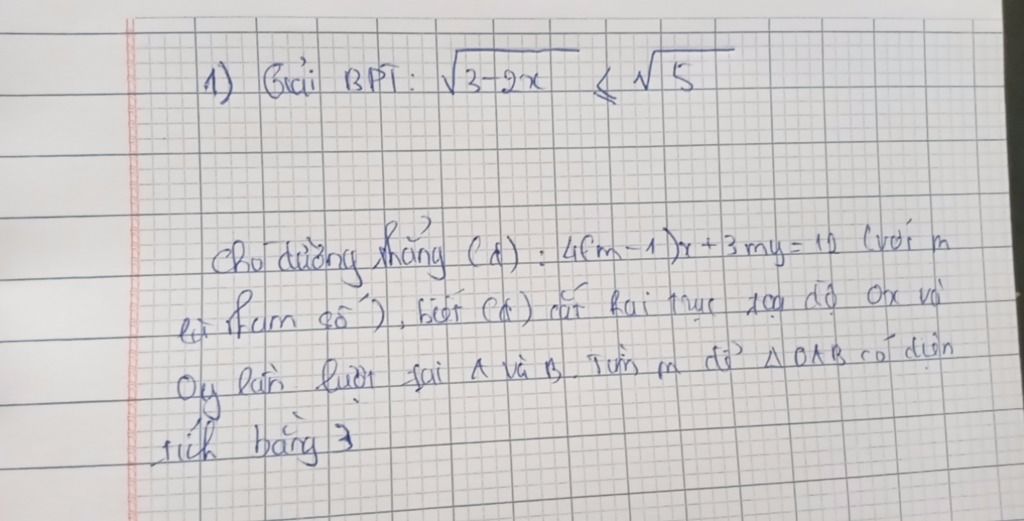 1) Giải BPT: √3-2x ≤ √5
Cho đường thẳng (d) : 4(m-1)x+3my=12 (với m
là tham số), biết (d) cắt hai trục tọa độ Ox và
Oy lần lượt tại A và B. Tìm m để △OAB có diện
tích bằng 3